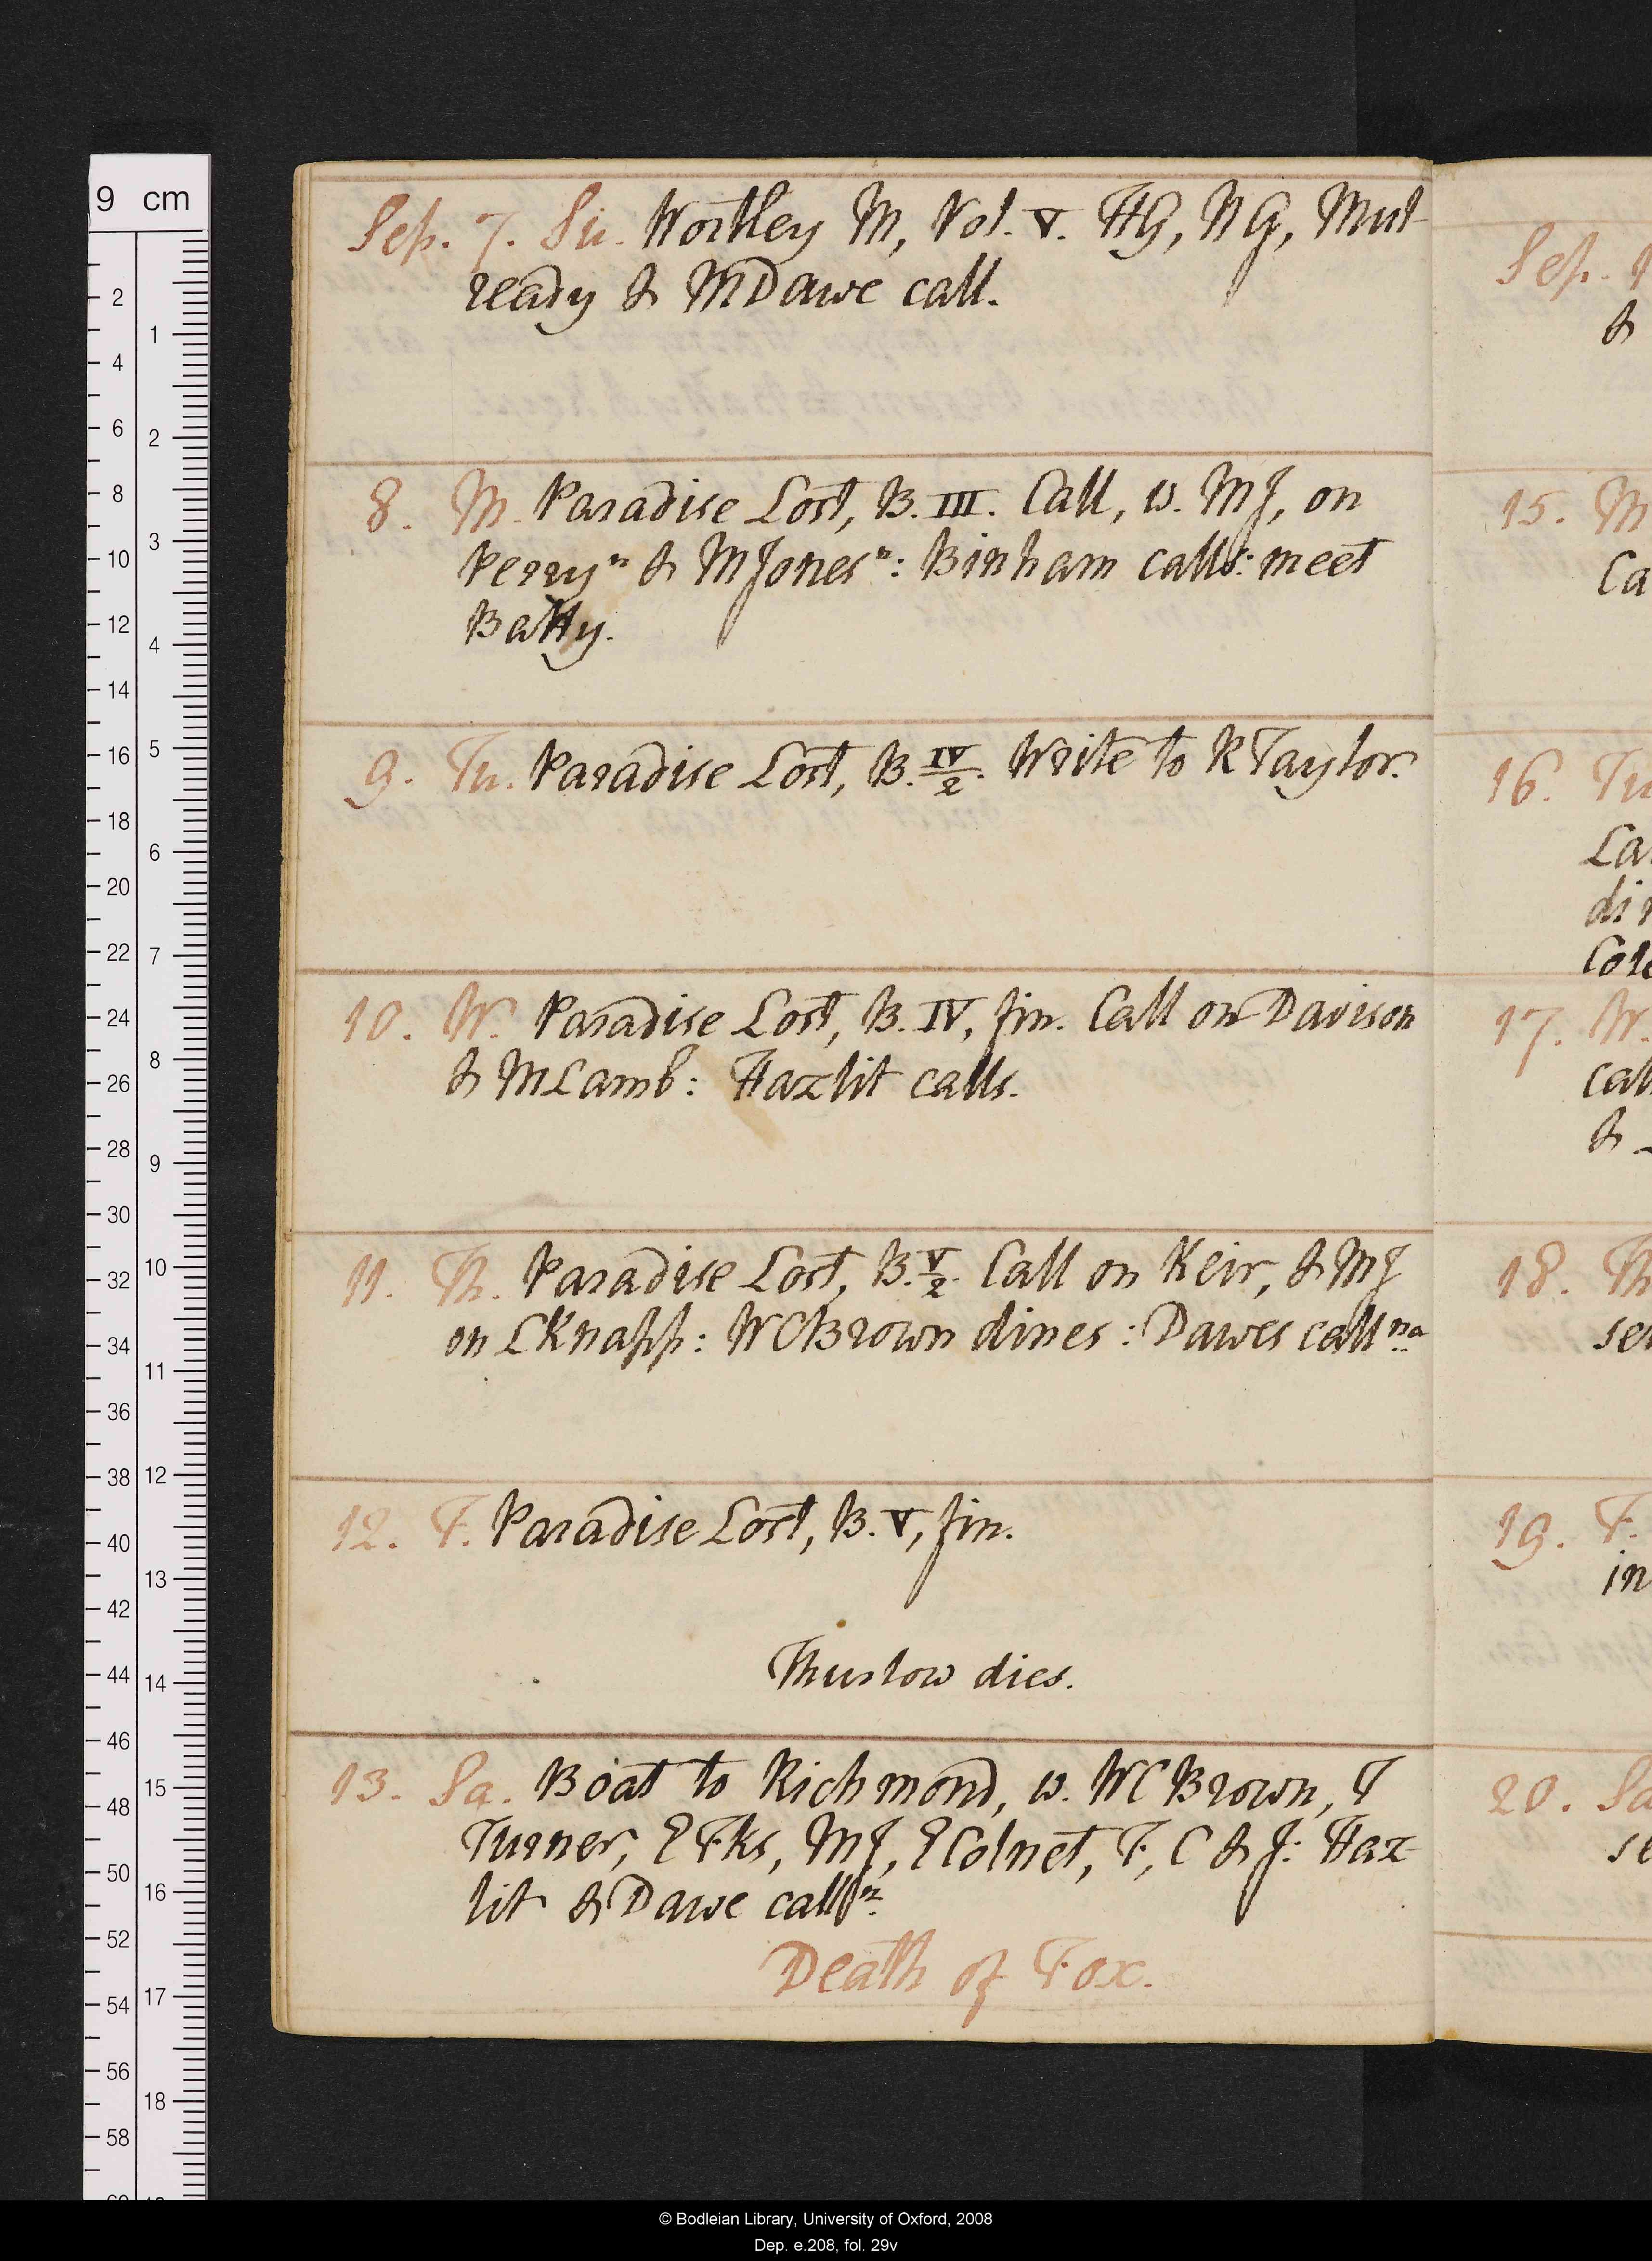 Sep. 7. Su. Wortley M, Vol. V. HG, NG, Mul-
ready & MDawe call.
8. M. Paradise Lost, B. III. Call, w. MJ, on
Perryⁿ & MJonesⁿ: Binham calls: meet
Batty.
9. Tu. Paradise Lost, B. IV/2. Write to RTaylor.
10. W. Paradise Lost, B. IV, fin. Call on Davison
& MLamb: Hazlit calls.
11. Th. Paradise Lost, B. V/2. Call on Keir, & MJ
on LKnapp: WCBrown dines: Dawes call ⁿᵃ
12. F. Paradise Lost, B. V, fin.
Thurlow dies.
13. Sa. Boat to Richmond, w. WCBrown, T
Turner, EFks, MJ, EColnet, F, C & J: Haz-
lit & Dawe callⁿ.
Death of Fox.
Sep. 1
&
15. M
Ca
16. Tu
La
din
Cole
17. W.
call
&
18. Th
19. F.
in
20. Sa
9 cm
2
4
6
8
10
12
14
16
18
20
22
24
26
28
30
32
34
36
38
40
42
44
46
48
50
52
54
56
58
1
2
3
4
5
6
7
8
9
10
11
12
13
14
15
16
17
18
© Bodleian Library, University of Oxford, 2008
Dep. e.208, fol. 29v